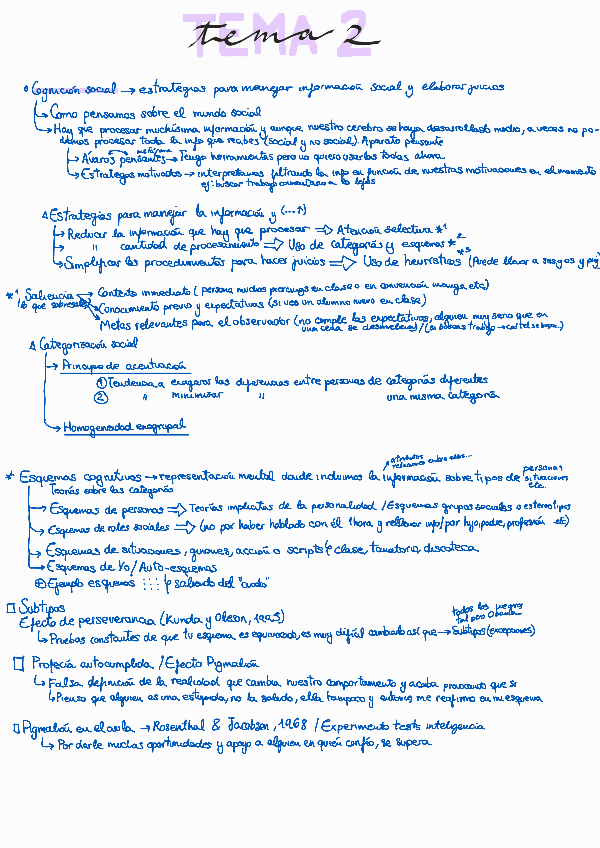 TEMA 2
tema 2
Cognición social → estrategias para manejar información social y elaborar juicios
Como pensamos sobre el mundo social
Hay que procesar muchísima información y aunque nuestro cerebro se haya desarrollado mucho, a veces no po-
demos procesar toda la info que recibes (social y no social). Aparato pensante
metáforas
Avaros pensantes → Tengo herramientas pero no quiero usarlas todas ahora
Estrategas motivados → interpretamos filtrando la info en función de nuestras motivaciones en el momento
ej: buscar trabajo
△ Estrategias para manejar la información y (...↑)
Reducir la información que hay que procesar ⇒ Atención selectiva *1
" cantidad de procesamiento ⇒ Uso de categorías y esquemas *2
Simplificar los procedimientos para hacer juicios ⇒ Uso de heurísticos *3 (Puede llevar a sesgos y
*1 Saliencia → Contexto inmediato (persona muchos piercings en clase o en convención manga, etc)
lo que sobresale → Conocimiento previo y expectativas (si ves un alumno nuevo en clase)
Metas relevantes para el observador (no cumple las expectativas, alguien muy serio que en
una cena se desmelena) / (si buscas trabajo →
△ Categorización social
Principio de acentuación
① Tendencia a exagerar las diferencias entre personas de categorías diferentes
② " minimizar " una misma categoría
Homogeneidad exogrupal
atributos
relaciones entre ellos...
* Esquemas cognitivos → representación mental donde incluimos la información sobre tipos de personas
situaciones
etc.
Teorías sobre las categorías
Esquemas de personas ⇒ Teorías implícitas de la personalidad / Esquemas grupos sociales o estereotipos
Esquemas de roles sociales ⇒ (no por haber hablado con él 1 hora y rellenar info / por hijo, padre, profesión etc)
Esquemas de situaciones, guiones, acción o scripts clase, tanatorio, discoteca
Esquemas de Yo / Auto-esquemas
Ejemplo esquemas ::: salirse del "cuadro"
□ Subtipos
todos los negros
tal pero Obama
Efecto de perseverancia (Kunda y Oleson, 1995)
Pruebas constantes de que tu esquema es equivocado, es muy difícil cambiarlo así que → Subtipos (excepciones)
□ Profecía autocumplida / Efecto Pigmalión
Falsa definición de la realidad que cambia nuestro comportamiento y acaba provocando que si
Pienso que alguien es una estúpida, no la saludo, ella tampoco y entonces me reafirmo en mi esquema
□ Pigmalión en el aula → Rosenthal & Jacobson, 1968 / Experimento tests inteligencia
Por darle muchas oportunidades y apoyo a alguien en quién confío, se supera